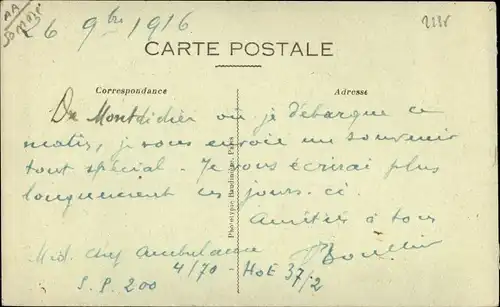 26 9bre 1916
CARTE POSTALE
Correspondance
Adresse
De Montdidier où je débarque ce
matin, je vous envoie un souvenir
tout spécial. Je vous écrirai plus
longuement ces jours-ci.
Amitiés à tous
Méd. chef Ambulance
4/70 - HoE 37/2
S.P. 200
Phototype Baudinière, Paris